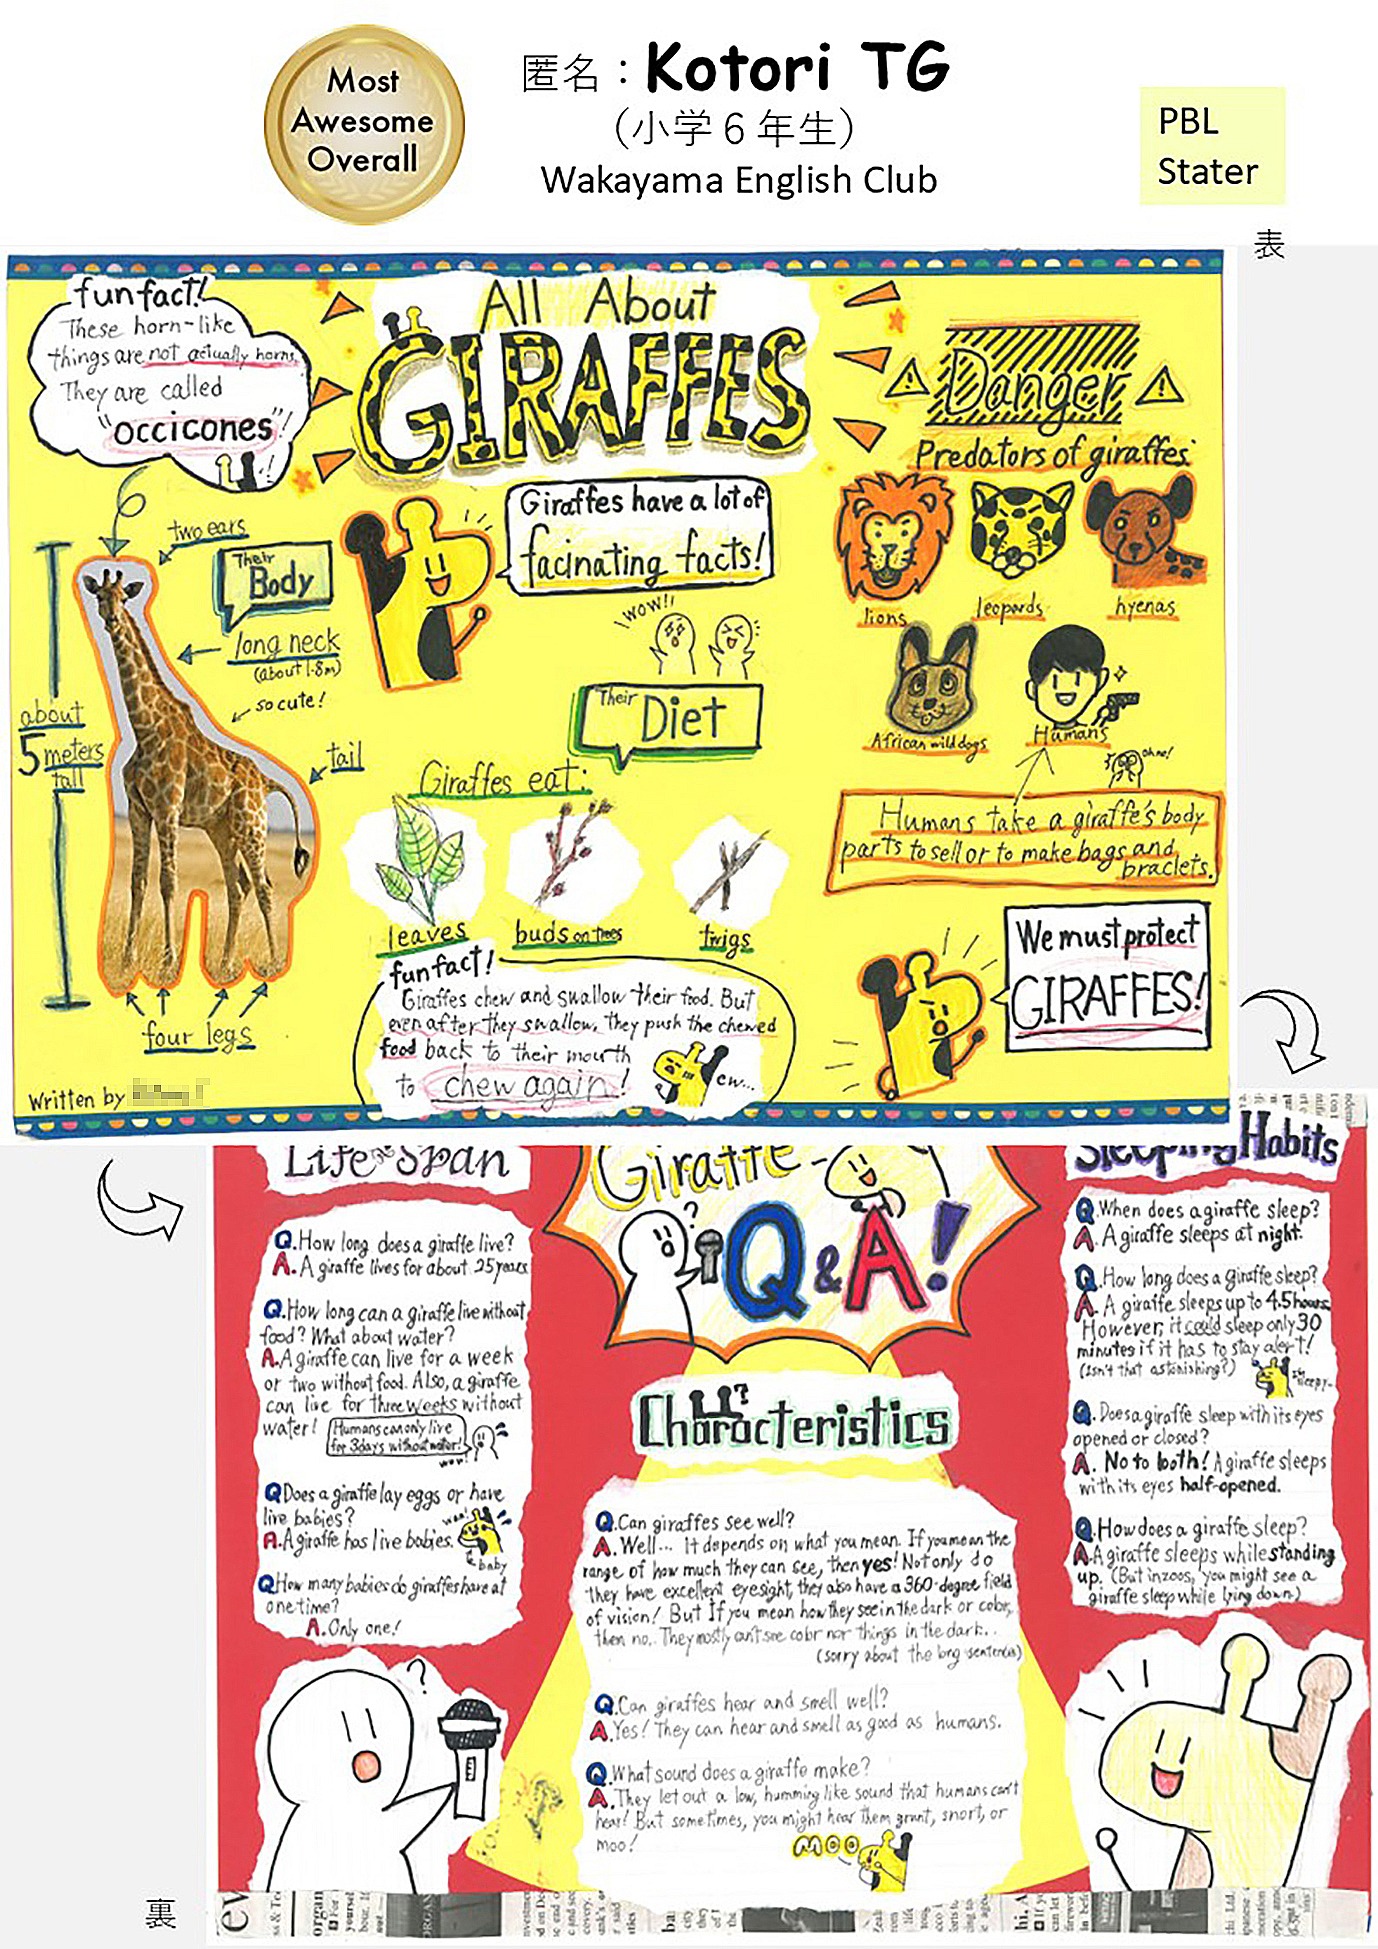 Most
Awesome
Overall
匿名：Kotori TG
（小学６年生）
Wakayama English Club
PBL
Stater
表
fun fact!
These horn-like
things are not actually horns.
They are called
"occicones"!
All About
GIRAFFES
Danger
Predators of giraffes
lions
leopards
hyenas
African wild dogs
Humans
oh no!
Humans take a giraffe's body
parts to sell or to make bags and
braclets.
We must protect
GIRAFFES!
Giraffes have a lot of
facinating facts!
WOW!!
two ears
Their
Body
long neck
(about 1.8m)
so cute!
about
5 meters
tall
tail
four legs
Written by
Their
Diet
Giraffes eat:
leaves
buds on trees
twigs
fun fact!
Giraffes chew and swallow their food. But
even after they swallow, they push the chewed
food back to their mouth
to chew again!
ew...
Life Span
Q.How long does a giraffe live?
A.A giraffe lives for about 25years
Q.How long can a giraffe live without
food? What about water?
A.A giraffe can live for a week
or two without food. Also, a giraffe
can live for three weeks without
water!
Humans can only live
for 3days without water!
wow!
Q Does a giraffe lay eggs or have
live babies?
A.A giraffe has live babies.
baby
Q How many babies do giraffes have at
one time?
A.Only one!
Giraffe
Q&A!
?
Characteristics
Q.Can giraffes see well?
A.Well... it depends on what you mean. If you mean the
range of how much they can see, then yes! Not only do
they have excellent eyesight, they also have a 360-degree field
of vision! But If you mean how they see in the dark or color,
then no.. They mostly can't see color nor things in the dark..
(sorry about the long sentences)
Q.Can giraffes hear and smell well?
A.Yes! They can hear and smell as good as humans.
Q.What sound does a giraffe make?
A.They let out a low, humming like sound that humans can't
hear! But sometimes, you might hear them grunt, snort, or
moo!
MOO
Sleeping Habits
Q.When does a giraffe sleep?
A.A giraffe sleeps at night.
Q.How long does a giraffe sleep?
A.A giraffe sleeps up to 4.5hours.
However, it could sleep only 30
minutes if it has to stay alert!
(Isn't that astonishing?)
Q.Does a giraffe sleep with its eyes
opened or closed?
A. No to both! A giraffe sleeps
with its eyes half-opened.
Q.How does a giraffe sleep?
A.A giraffe sleeps while standing
up. (But in zoos, you might see a
giraffe sleep while lying down.)
?
裏